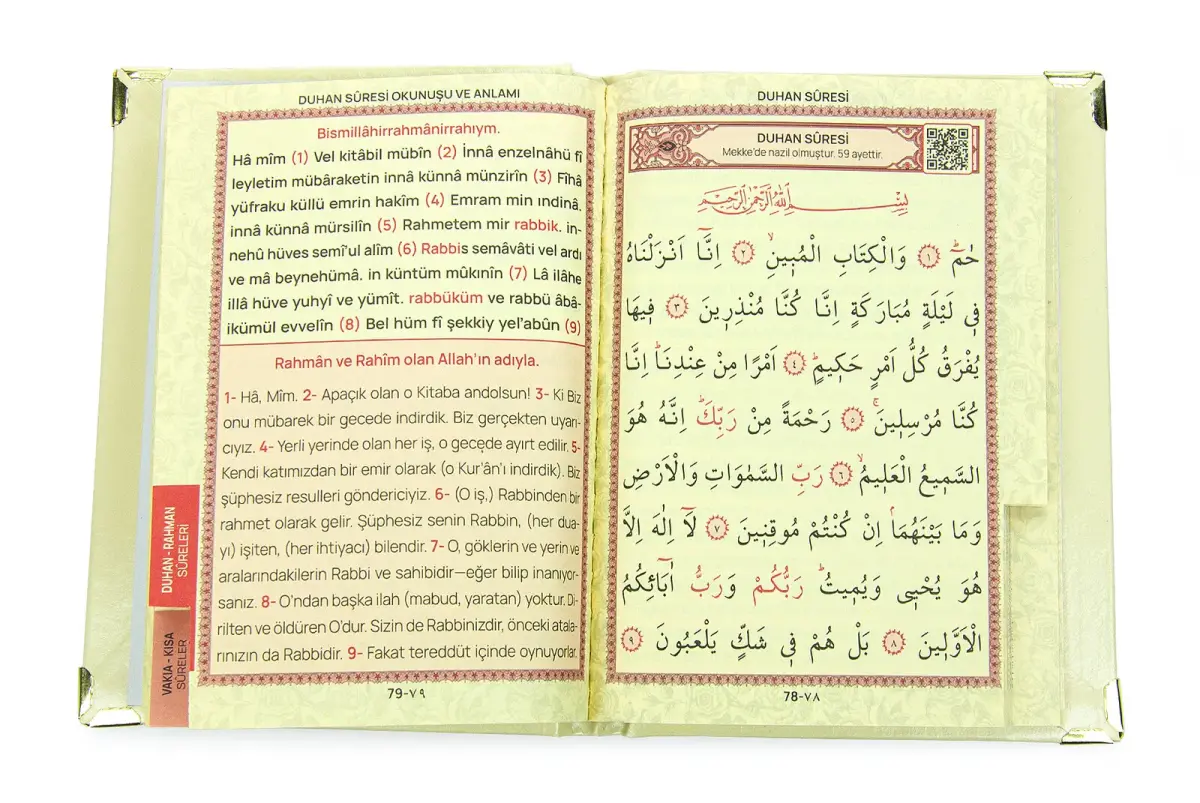 DUHAN SÛRESİ
DUHAN SÛRESİ
Mekke'de nazil olmuştur. 59 ayettir.
بِسْمِ اللّٰهِ الرَّحْمٰنِ الرَّحِيمِ
حٰمٓۜ ﴿١﴾ وَالْكِتَابِ الْمُبٖينِۙ ﴿٢﴾ اِنَّٓا اَنْزَلْنَاهُ
فٖي لَيْلَةٍ مُبَارَكَةٍ اِنَّا كُنَّا مُنْذِرٖينَ ﴿٣﴾ فٖيهَا
يُفْرَقُ كُلُّ اَمْرٍ حَكٖيمٍۜ ﴿٤﴾ اَمْرًا مِنْ عِنْدِنَاۜ اِنَّا
كُنَّا مُرْسِلٖينَۚ ﴿٥﴾ رَحْمَةً مِنْ رَبِّكَۜ اِنَّهُ هُوَ
السَّمٖيعُ الْعَلٖيمُۙ ﴿٦﴾ رَبِّ السَّمٰوَاتِ وَالْاَرْضِ
وَمَا بَيْنَهُمَاۢ اِنْ كُنْتُمْ مُوقِنٖينَ ﴿٧﴾ لَٓا اِلٰهَ اِلَّا
هُوَ يُحْيٖي وَيُمٖيتُۜ رَبُّكُمْ وَرَبُّ اٰبَٓائِكُمُ
الْاَوَّلٖينَ ﴿٨﴾ بَلْ هُمْ فٖي شَكٍّ يَلْعَبُونَ ﴿٩﴾
78-٧٨
DUHAN SÛRESİ OKUNUŞU VE ANLAMI
Bismillâhirrahmânirrahıym.
Hâ mîm (1) Vel kitâbil mübîn (2) İnnâ enzelnâhü fî
leyletim mübâraketin innâ künnâ münzirîn (3) Fîhâ
yüfraku küllü emrin hakîm (4) Emram min ındinâ.
innâ künnâ mürsilîn (5) Rahmetem mir rabbik. in-
nehû hüves semî'ul alîm (6) Rabbis semâvâti vel ardı
ve mâ beynehümâ. in küntüm mûkınîn (7) Lâ ilâhe
illâ hüve yuhyî ve yümît. rabbüküm ve rabbü âbâ-
ikümül evvelîn (8) Bel hüm fî şekkiy yel'abûn (9)
Rahmân ve Rahîm olan Allah'ın adıyla.
1- Hâ, Mîm. 2- Apaçık olan o Kitaba andolsun! 3- Ki Biz
onu mübarek bir gecede indirdik. Biz gerçekten uyarı-
cıyız. 4- Yerli yerinde olan her iş, o gecede ayırt edilir. 5-
Kendi katımızdan bir emir olarak (o Kur'ân'ı indirdik). Biz
şüphesiz resulleri göndericiyiz. 6- (O iş,) Rabbinden bir
rahmet olarak gelir. Şüphesiz senin Rabbin, (her dua-
yı) işiten, (her ihtiyacı) bilendir. 7- O, göklerin ve yerin ve
aralarındakilerin Rabbi ve sahibidir—eğer bilip inanıyor-
sanız. 8- O'ndan başka ilah (mabud, yaratan) yoktur. Di-
rilten ve öldüren O'dur. Sizin de Rabbinizdir, önceki atala-
rınızın da Rabbidir. 9- Fakat tereddüt içinde oynuyorlar.
79-٧٩
DUHAN - RAHMAN
SÛRELERİ
VAKIA - KISA
SÛRELER